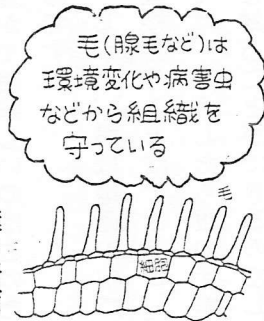 毛(腺毛など)は
環境変化や病害虫
などから組織を
守っている
毛
細胞